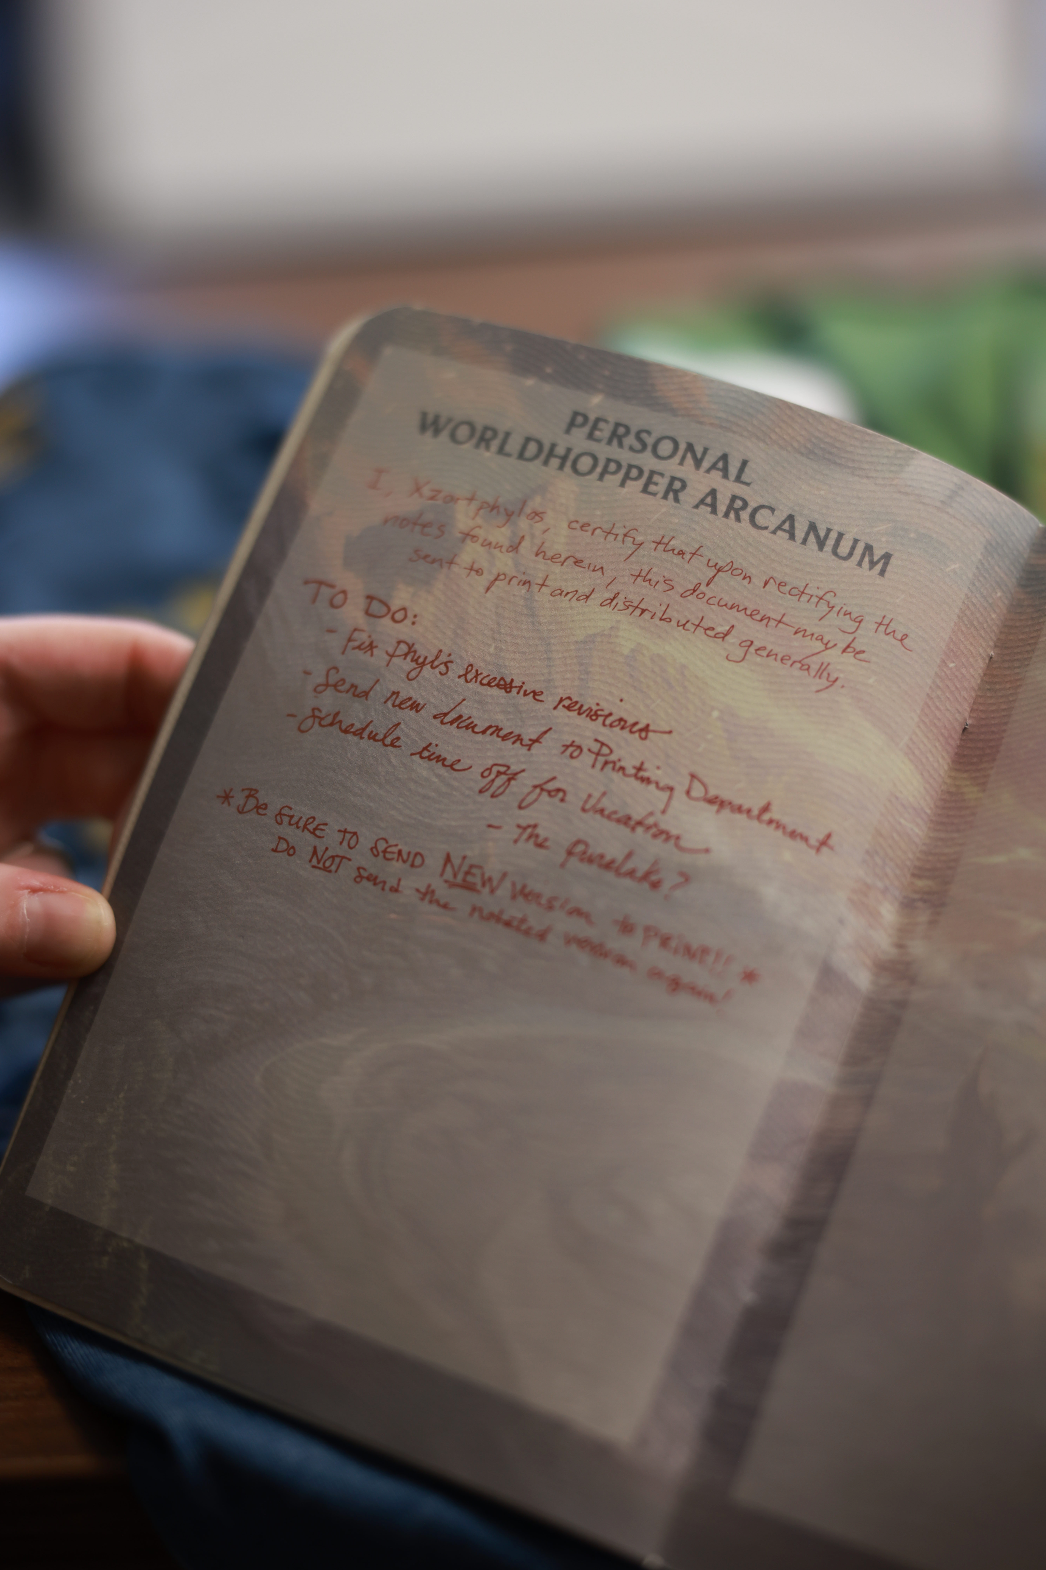 PERSONAL
WORLDHOPPER ARCANUM
I, Xzortphylos, certify that upon rectifying the
notes found herein, this document may be
sent to print and distributed generally.
TO DO:
- Fix Phyl's excessive revisions
- Send new document to Printing Department
- Schedule time off for Vacation
- The Purelake?
*Be SURE TO SEND NEW Version to PRINT!! *
Do NOT send the notated version again!